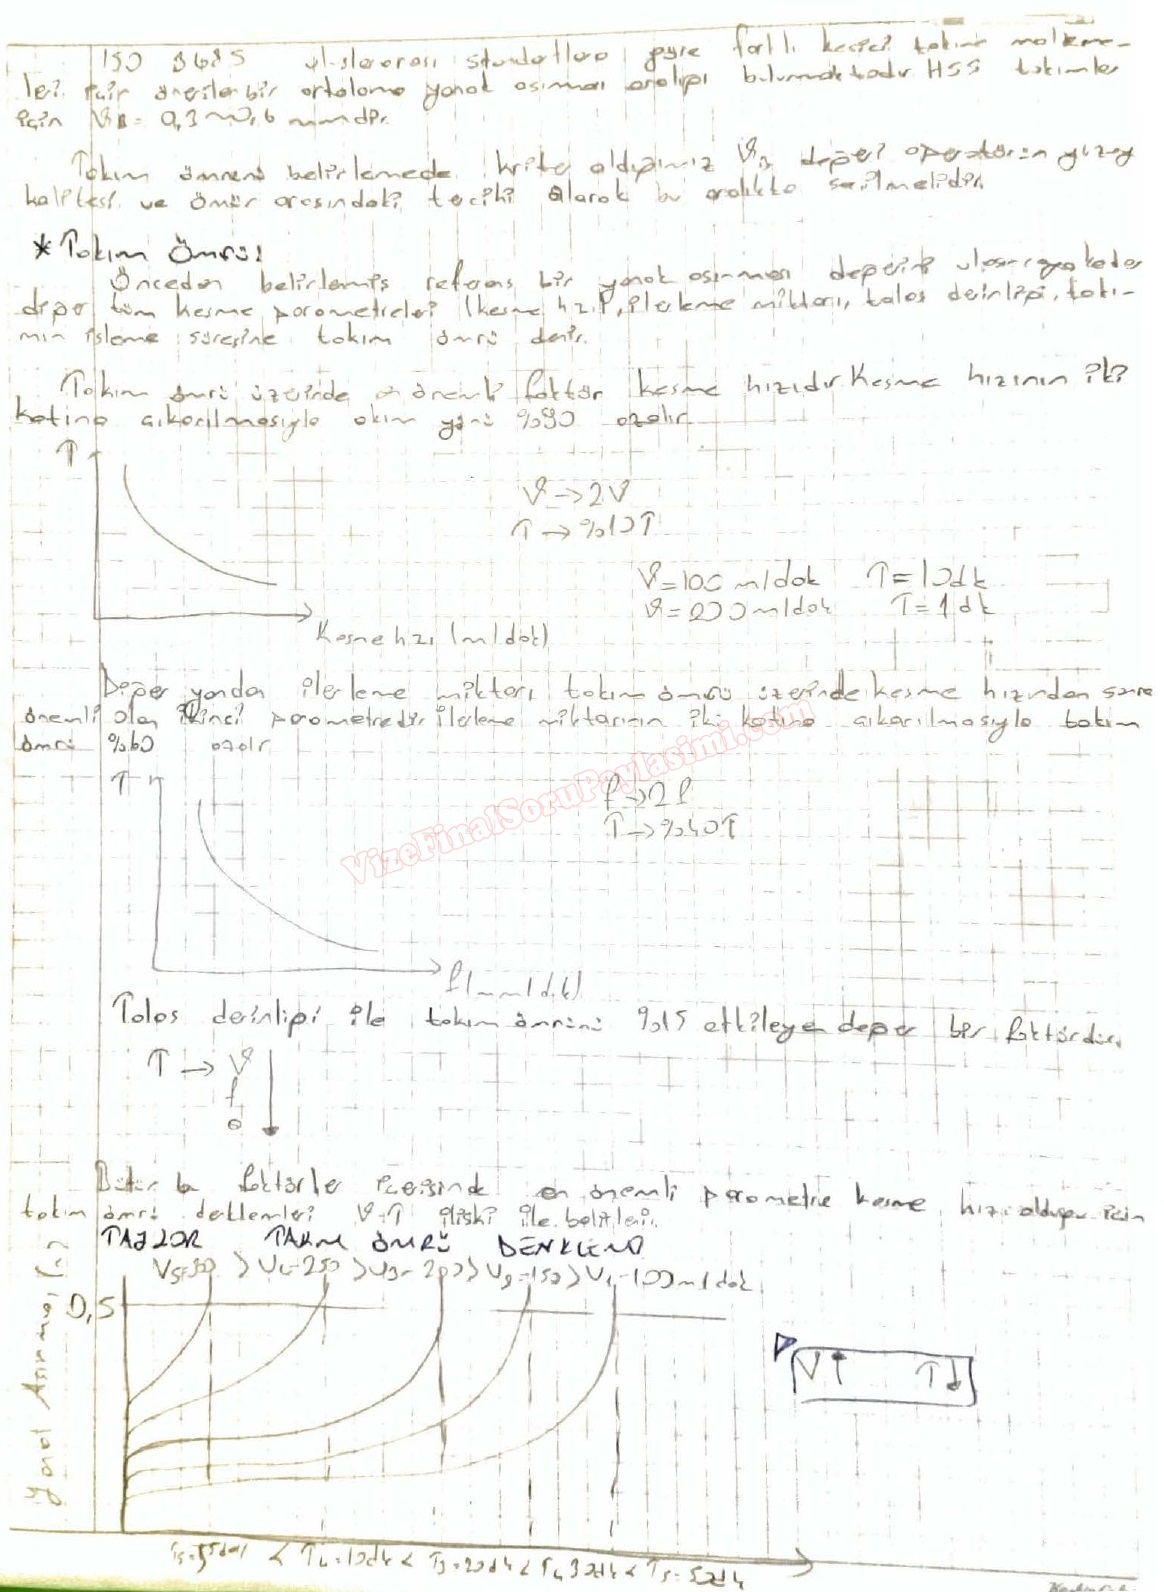 ISO 3685 uluslararası standartlara göre farklı kesici takım malzeme-
leri için önerilen bir ortalama yanak aşınması aralığı bulunmaktadır HSS takımlar
için VB = 0,3~0,6 mm dir.
Takım ömrünü belirlemede kriter aldığımız VB değeri operatörün yüzey
kalitesi ve ömür arasındaki tercihi olarak bu aralıkta seçilmelidir.
* Takım Ömrü:
Önceden belirlemiş referans bir yanak aşınması değerini ulaşıncaya kadar
diğer tüm kesme parametreleri (kesme hızı, ilerleme miktarı, talaş derinliği, takı-
mın işleme süresine takım ömrü denir.
Takım ömrü üzerinde en önemli faktör kesme hızıdır. Kesme hızının iki
katına çıkarılmasıyla %90 azalır
T
V → 2V
T → %10T
V=100 m/dak T=10dk
V=200 m/dak T=1dk
Kesme hızı (m/dak)
Diğer yandan ilerleme miktarı takım ömrü üzerinde kesme hızından sonra
önemli olan ikinci parametredir ilerleme miktarının iki katına çıkarılmasıyla takım
ömrü %60 azalır
T
f → 2f
T → %40T
VizeFinalSoruPaylasimi.com
Talaş derinliği ile takım ömrünü %15 etkileyen diğer bir faktördür.
T → V
f
a
Bütün bu faktörler içerisinde en önemli parametre kesme hızı olduğu için
takım ömrü denklemleri V-T ilişki ile belirlenir.
TAYLOR TAKIM ÖMRÜ DENKLEMİ
> V4=250 > V3=200 > V2=150 > V1=100 m/dak
0,5
Yanal Aşınma
V↑ T↓
< T4=10dk < T3=20dk < 30dk < =50dk